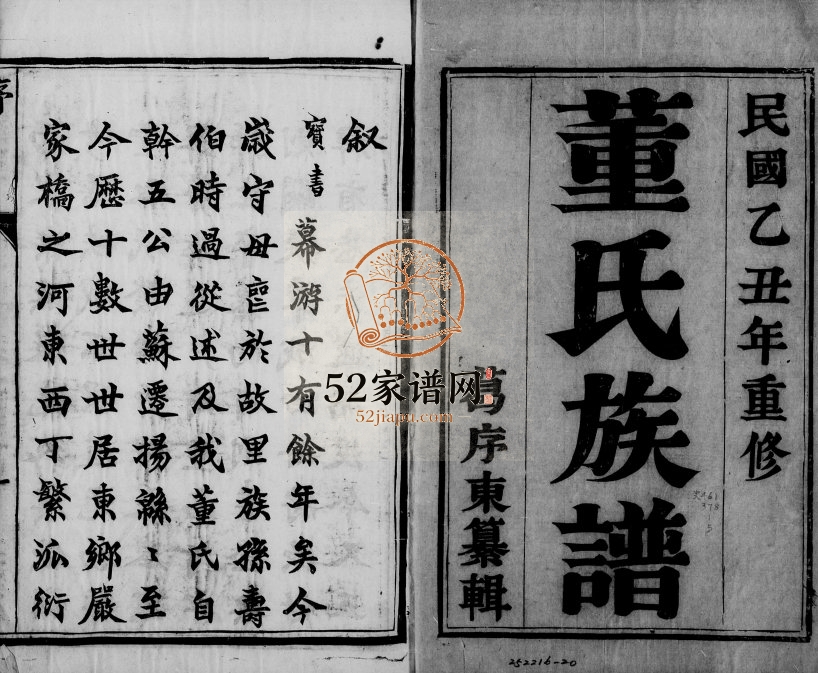 民國乙丑年重修
董氏族譜
葛序東纂輯
叙
寶書幕游十有餘年矣今
歲守母喪於故里族孫壽
伯時過從述及我董氏自
幹五公由蘇遷揚緜〻至
今歷十數世世居東鄉嚴
家橋之河東西丁繁派衍
序
52家谱网
52jiapu.com
252216-20